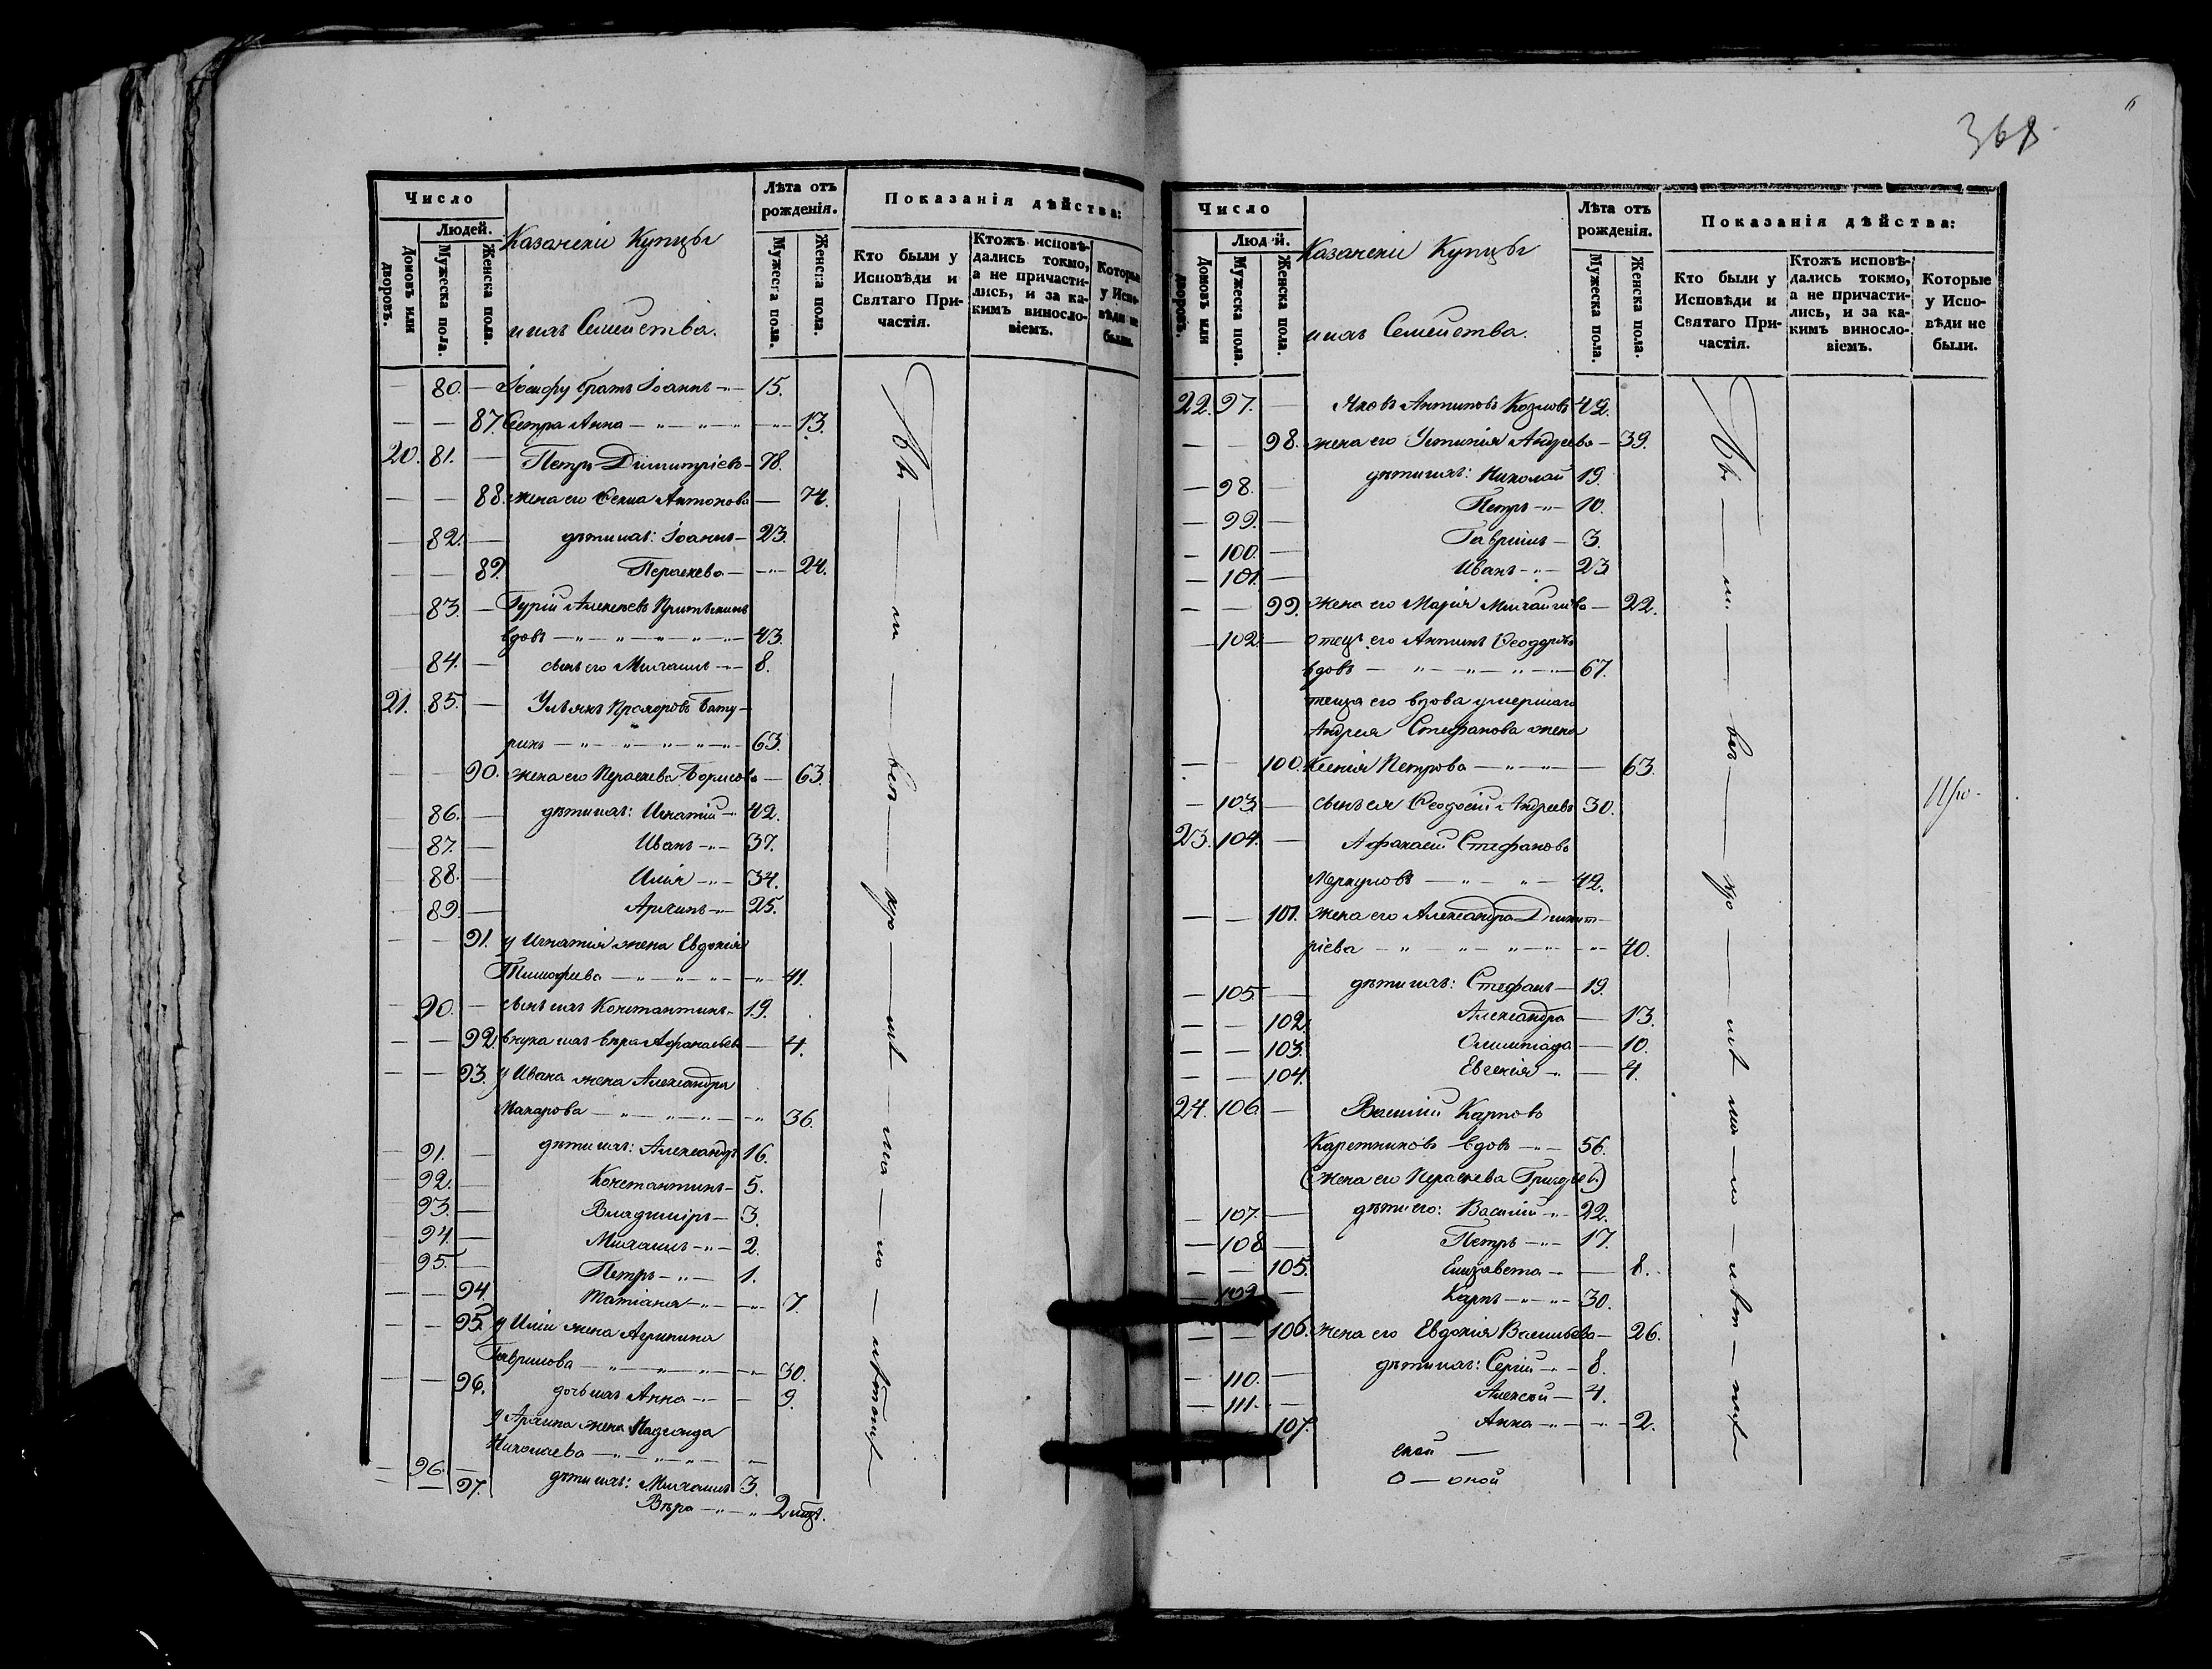 Число
Людей.
Домовъ или дворовъ.
Мужеска пола.
Женска пола.
Казанскiи Купцы
и ихъ Семейства.
Лѣта отъ рожденiя.
Мужеска пола.
Женска пола.
Показанiя дѣйства:
Кто были у Исповѣди и Святаго Причастiя.
Ктожъ исповѣдались токмо, а не причастились, и за какимъ винословiемъ.
Которые у Исповѣди не были.
— 80. — Iосифу братъ Iоаннъ 15.
— — 87. Сестра Анна 13.
20. 81. — Петръ Димитрiевъ 78.
— — 88. жена его Ксенiа Антонова — 74.
— 82. — дѣти ихъ: Iоаннъ — 23.
— — 89. Параскева — 24.
— 83. — Гурiй Алексѣевъ
вдовъ 43.
— 84. — сынъ его Михаилъ 8.
21. 85. — Ульянъ Прохоровъ Бату-
ринъ 63.
— — 90. жена его Параскева Борисова — 63.
— 86. — дѣти ихъ: Игнатiй 42.
— 87. — Иванъ 37.
— 88. — Илiя 34.
— 89. — Архипъ 25.
— — 91. у Игнатiя жена Евдокiя
Тимофеева 41.
— 90. — сынъ ихъ Константинъ 19.
— — 92. внука ихъ Вѣра Афанасьева — 4.
— — 93. у Ивана жена Александра
Макарова 36.
— 91. — дѣти ихъ: Александръ 16.
— 92. — Константинъ 5.
— 93. — Владимiръ 3.
— 94. — Михаилъ 2.
— 95. — Петръ 1.
— — 94. Татiана 7.
— — 95. у Илiи жена Агрипина
Гаврилова 30.
— — 96. дочь ихъ Анна 9.
у Архипа жена Надежда
Николаева
— 96. — дѣти ихъ: Михаилъ 3.
— — 97. Вѣра 2 мѣс.
368
Число
Людей.
Домовъ или дворовъ.
Мужеска пола.
Женска пола.
Казанскiи Купцы
и ихъ Семейства.
Лѣта отъ рожденiя.
Мужеска пола.
Женска пола.
Показанiя дѣйства:
Кто были у Исповѣди и Святаго Причастiя.
Ктожъ исповѣдались токмо, а не причастились, и за какимъ винословiемъ.
Которые у Исповѣди не были.
22. 97. — Яковъ Антиповъ Козловъ 42.
— — 98. жена его Устинiя Андреева — 39.
— 98. — дѣти ихъ: Николай 19.
— 99. — Петръ 10.
— 100. — Гаврiилъ 3.
— 101. — Иванъ 23
— — 99. жена его Марiя Михайлова — 22.
— 102. — отецъ его Антипъ Ѳеодоровъ
вдовъ 67.
теща его вдова умершаго
Андрея Стефанова жена
— — 100. Ксенiя Петрова — 63.
— 103. — сынъ ея Ѳеодосiй Андреевъ 30.
23. 104. — Афанасiй Стефановъ
Меркуловъ 42.
— — 101. жена его Александра Димит-
рiева 40.
— 105 — дѣти ихъ: Стефанъ 19.
— — 102. Александра — 13.
— — 103. Олимпiада — 10.
— — 104. Евгенiя — 4.
24. 106 — Василiй Карповъ
Каретниковъ вдовъ 56.
(Жена его Параскева Григорьев.)
— 107. — дѣти его: Василiй 22.
— 108 — Петръ 17.
— — 105. Елизавета — 8.
109. — Карпъ 30.
— — 106. жена его Евдокiя Васильева — 26.
— 110. — дѣти ихъ: Сергiй 8.
— 111. — Алексѣй 4.
107. Анна 2.